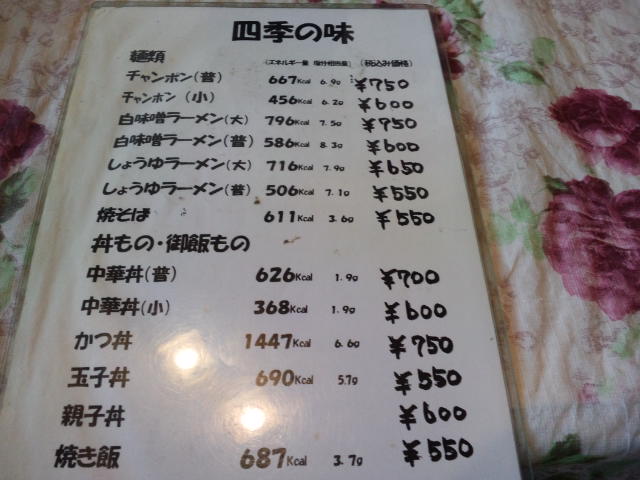 四季の味
麺類 (エネルギー量 塩分相当量) (税込み価格)
チャンポン(普) 667Kcal 6.9g ¥750
チャンポン(小) 456Kcal 6.2g ¥600
白味噌ラーメン(大) 796Kcal 7.5g ¥750
白味噌ラーメン(普) 586Kcal 8.3g ¥600
しょうゆラーメン(大) 716Kcal 7.9g ¥650
しょうゆラーメン(普) 506Kcal 7.1g ¥550
焼そば 611Kcal 3.6g ¥550
丼もの・御飯もの
中華丼(普) 626Kcal 1.9g ¥700
中華丼(小) 368Kcal 1.9g ¥600
かつ丼 1447Kcal 6.6g ¥750
玉子丼 690Kcal 5.7g ¥550
親子丼 ¥600
焼き飯 687Kcal 3.7g ¥550